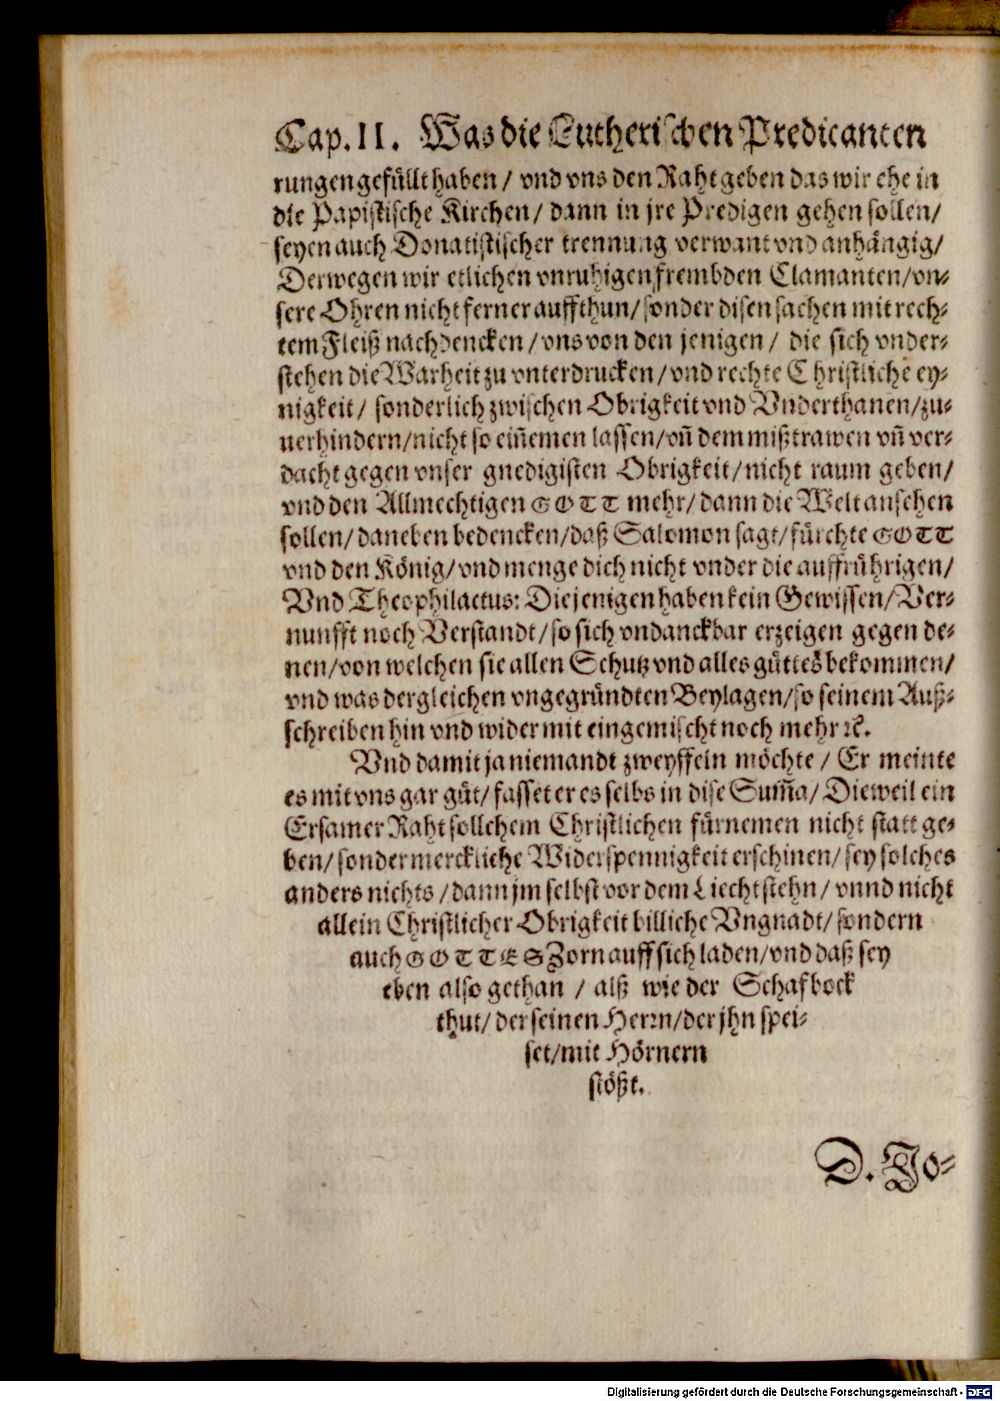 Cap. II. Was die Lutherischen Predicanten
rungen gefüllt haben / vnd vns den Raht geben das wir ehe in
die Papistische Kirchen / dann in jre Predigen gehen sollen /
seyen auch Donatistischer trennung verwant vnd anhängig /
Derwegen wir etlichen vnruhigen frembden Clamanten / vn-
sere Ohren nicht ferner auffthun / sonder disen sachen mit rech-
tem Fleiß nachdencken / vns von den jenigen / die sich vnder-
stehen die Warheit zu vnterdrucken / vnd rechte Christliche ey-
nigkeit / sonderlich zwischen Obrigkeit vnd Vnderthanen / zu-
uerhindern / nicht so eiñemen lassen / vñ dem mißtrawen vñ ver-
dacht gegen vnser gnedigisten Obrigkeit / nicht raum geben /
vnd den Allmechtigen GOTT mehr / dann die Welt ansehen
sollen / daneben bedencken / daß Salomon sagt / fürchte GOTT
vnd den König / vnd menge dich nicht vnder die auffrührigen /
Vnd Theophilactus: Diejenigen haben kein Gewissen / Ver-
nunfft noch Verstandt / so sich vndanckbar erzeigen gegen de-
nen / von welchen sie allen Schutz vnd alles güttes bekommen /
vnd was dergleichen vngegründten Beylagen / so seinem Auß-
schreiben hin vnd wider mit eingemischt noch mehr ꝛc.
Vnd damit ja niemandt zweyffeln möchte / Er meinte
es mit vns gar gůt / fasset er es selbs in dise Sum̃a / Dieweil ein
Ersamer Raht sollchem Christlichen fürnemen nicht statt ge-
ben / sonder merckliche Widerspennigkeit erschinen / sey solches
anders nichts / dann jm selbst vor dem Liecht stehn / vnnd nicht
allein Christlicher Obrigkeit billiche Vngnadt / sondern
auch GOTTES Zorn auff sich laden / vnd daß sey
eben also gethan / alß wie der Schafbock
thut / der seinen Herrn / der jhn spei-
set / mit Hörnern
stößt.
D. Jo-
Digitalisierung gefördert durch die Deutsche Forschungsgemeinschaft - DFG